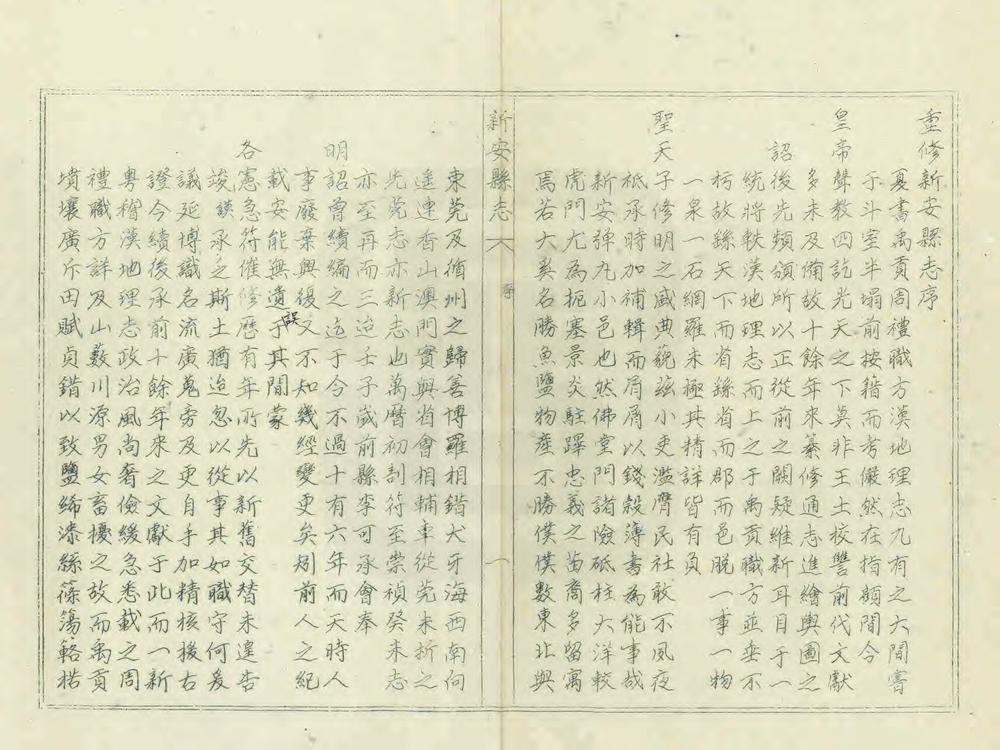 重修新安縣志序
夏書禹貢周禮職方漢地理志九有之大閒嘗
于斗室半塌前按籍而考儼然在指顧間今
皇帝聲教四訖光天之下莫非王土校讐前代文獻
多未及備故十餘年來纂修通志進繪輿圖之
詔後先頻頒所以正從前之闕疑維新耳目于一
統將軼漢地理志而上之于禹貢職方並垂不
朽故繇天下而省繇省而郡而邑脫一事一物
一泉一石網羅未極其精詳皆有負
聖天子修明之盛典藐玆小吏濫膺民社敢不夙夜
祗承時加補輯而屑屑以錢穀薄書為能事哉
新安彈丸小邑也然佛堂門諸險砥柱大洋較
虎門尤為扼塞景炎駐蹕忠義之苗裔多留寓
焉若大奚名勝魚鹽物產不勝僕僕數東北與
新安縣志 序 一
東莞及循州之歸善博羅相錯犬牙海西南向
遥連香山澳門實與省會相輔車從莞未折之
先莞志亦新志也萬曆初剖符至崇禎癸未志
亦至再而三迨壬子歲前縣李可承會奉
明詔曾續編之迄于今不過十有六年而天時人
事廢棄興復又不知幾經變更矣矧前人之紀
載安能無遺誤于其間蒙
各憲急符催修歷有年所先以新舊交替未遑告
竣 鍈承乏斯土猶迨忽以從事其如職守何爰
議延博識名流廣蒐旁及更自手加精核援古
證今續後承前十餘年來之文獻于此而一新
粵稽漢地理志政治風尚奢儉緩急悉載之周
禮職方詳及山藪川源男女畜擾之故而禹貢
墳壤廣斥田賦貞錯以致鹽絺漆絲篠簜簵楛